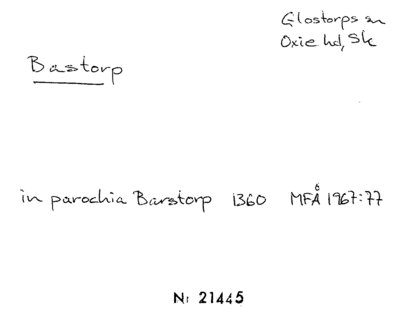 Glostorps sn
Oxie hd, Sk
Bastorp
in parochia Barstorp 1360 MFÅ 1967:77
Nr 21445